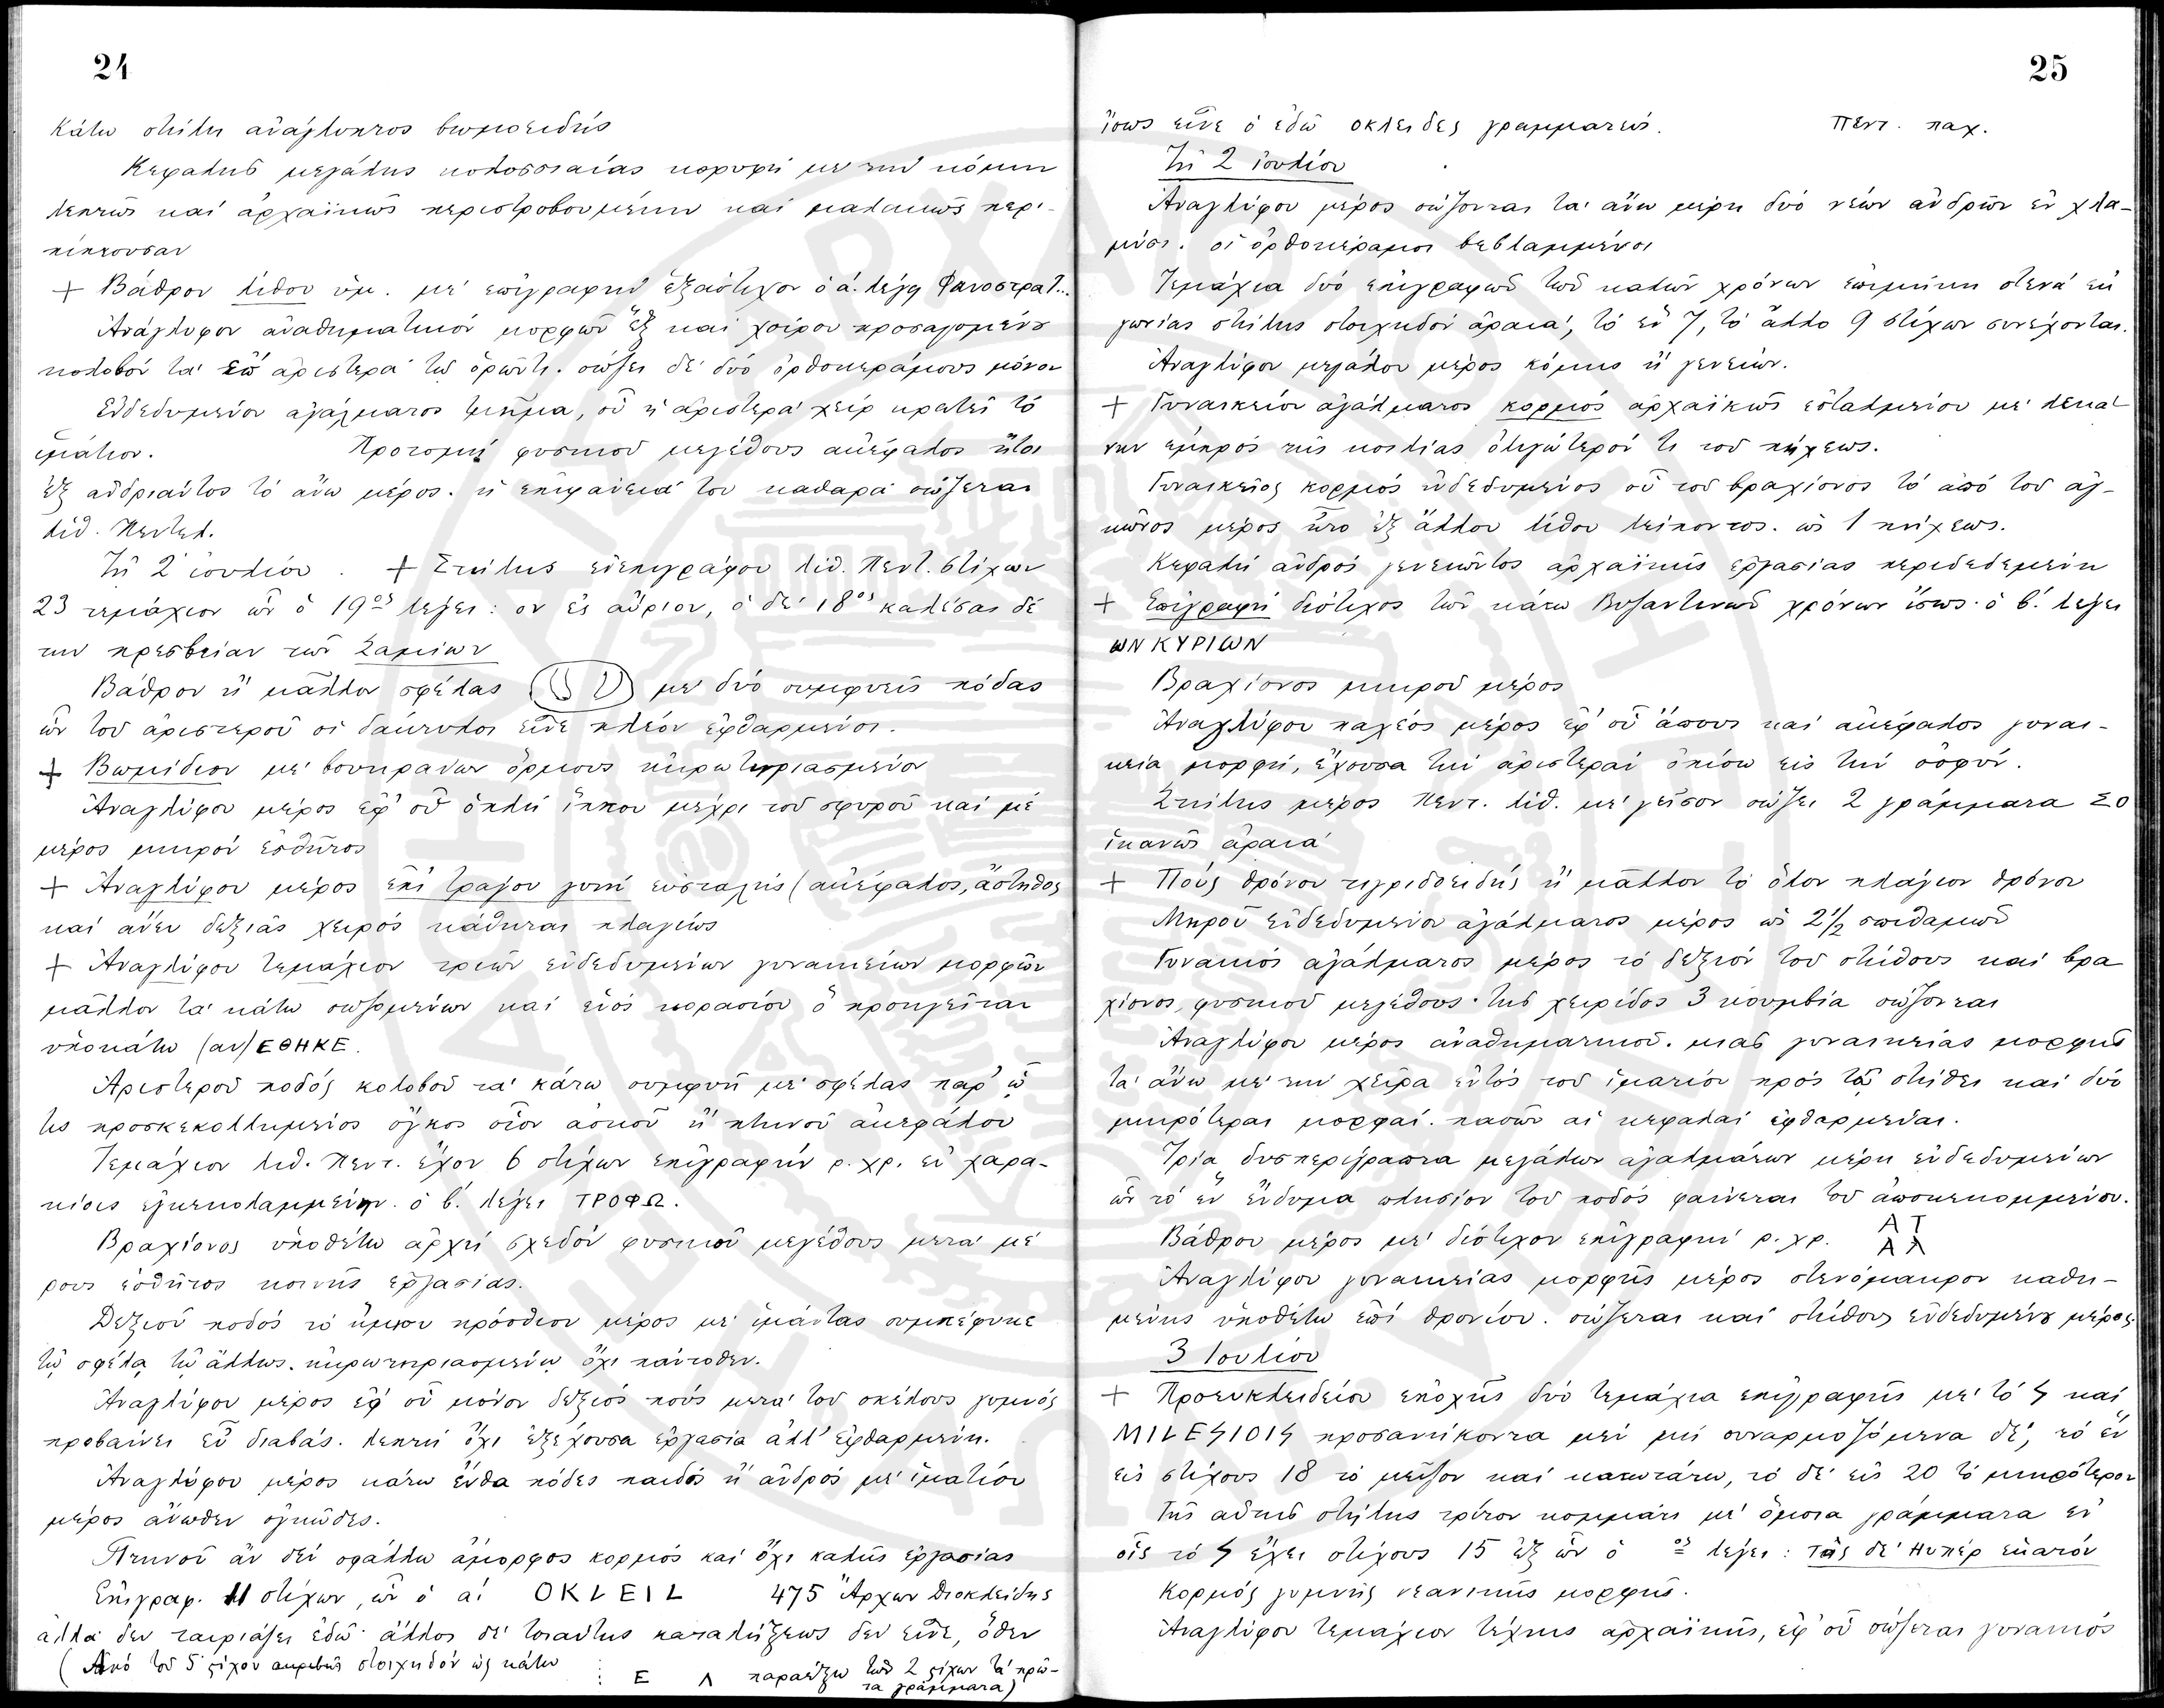 24
Κάτω στήλη ἀνάγλυπτος βωμοειδής
Κεφαλῆς μεγάλης κολοσσιαίας κορυφή με την κόμην
λεπτῶς καί ἀρχαϊκῶς περιστροβουμένην καί μαλακῶς περι-
πίπτουσαν
+ Βάθρον λίθου ὑμ. με ἐπιγραφήν ἑξάστιχον ὁ ά. λέγει Φανοστρατ...
Ἀνάγλυφον ἀναθηματικόν μορφῶν ἕξ καί χοίρου προσαγομένου
κολοβόν τά ἀριστερά τῷ ὁρῶντι. σώζει δέ δύο ὀρθοκεράμους μόνον
Ἐνδεδυμένου ἀγάλματος τμῆμα, οὗ ἡ ἀριστερά χείρ κρατεῖ τό
ἱμάτιον. Προτομή φυσικοῦ μεγέθους ἀκέφαλος ἤτοι
ἐξ ἀνδριάντος τό ἄνω μέρος. ἡ ἐπιφάνειά του καθαρά σώζεται
λίθ. Πεντελ.
Τῇ 2 ἰουλίου. + Στήλης ἐνεπιγράφου λίθ. Πεντ. στίχων
23 τεμάχιον ὧν ὁ 19ος λέγει: ον ἐς αὔριον, ὁ δέ 18ος καλέσαι δέ
την πρεσβείαν τῶν Σαμίων
Βάθρον ἤ μᾶλλον σφέλας με δύο συμφυεῖς πόδας
ὧν τοῦ ἀριστεροῦ οἱ δάκτυλοι εἶνε πλέον ἐφθαρμένοι.
+ Βωμίδιον με βουκρανίων ὅρμους ἠκρωτηριασμένον
Ἀναγλύφου μέρος ἐφ' οὗ ὁπλή ἵππου μέχρι τοῦ σφυροῦ καί μέ
μέρος μικρόν ἐσθῆτος
+ Ἀναγλύφου μέρος ἐπί τράγου γυνή εὐσταλής (ἀκέφαλος, ἄστηθος
καί ἄνευ δεξιᾶς χειρός κάθηται πλαγίως
+ Ἀναγλύφου τεμάχιον τριῶν ἐνδεδυμένων γυναικείων μορφῶν
μᾶλλον τά κάτω σωζομένων καί ἑνός κορασίου ὅ προηγεῖται
ὑποκάτω (αν)ΕΘΗΚΕ.
Ἀριστεροῦ ποδός κολοβοῦ τά κάτω συμφυῆ με σφέλας παρ' ᾧ
τις προσκεκολλημένος ὄγκος οἷον ἀσκοῦ ἤ πτηνοῦ ἀκεφάλου
Τεμάχιον λίθ. Πεντ. ἔχον 6 στίχων ἐπιγραφήν ρ. χρ. ἐν χαρα-
κίοις ἐγκεκολαμμένην. ὁ β. λέγει ΤΡΟΦΩ.
Βραχίονος ὑποθέτω ἀρχή σχεδόν φυσικοῦ μεγέθους μετά μέ
ρους ἐσθῆτος κοινῆς ἐργασίας.
Δεξιοῦ ποδός τό ἥμισυ πρόσθιον μέρος με ἱμάντας συμπέφυκε
τῷ σφέλᾳ τῷ ἄλλως. ἠκρωτηριασμένῳ ὄχι πάντοθεν.
Ἀναγλύφου μέρος ἐφ' οὗ μόνον δεξιός πούς μετά τοῦ σκέλους γυμνός
προβαίνει εὖ διαβάς. λεπτή ὄχι ἐξέχουσα ἐργασία ἀλλ' ἐφθαρμένη.
Ἀναγλύφου μέρος κάτω ἔνθα πόδες παιδός ἤ ἀνδρός με ἱματίου
μέρος ἄνωθεν ὀγκῶδες.
Πτηνοῦ ἄν δέν σφάλλω ἄμορφος κορμός καί ὄχι καλῆς ἐργασίας
Ἐπιγραφ. 11 στίχων, ὧν ὁ α! OKLEIL 475 Ἄρχων Διοκλείδης
ἀλλά δεν ταιριάζει ἐδῶ ἄλλος δέ τοιαύτης καταλήξεως δεν εἶνε, ὅθεν
(Ἀπό τοῦ 5 ςίχου ἀκριβῶς στοιχηδόν ὡς κάτω ⋮ Ε Λ παραεύξω τῶν 2 ςίχων τά πρῶ-
τα γράμματα)
25
ἴσως εἶνε ὁ ἐδῶ οκλειδες γραμματεύς. Πεντ. παχ.
Τῇ 2 Ἰουλίου
Ἀναγλύφου μέρος σώζονται τά ἄνω μέρη δύο νέων ἀνδρῶν ἐν χλα-
μύσι. οἱ ὀρθοκέραμοι βεβλαμμένοι
Τεμάχια δύο ἐπιγραφῶν τῶν καλῶν χρόνων ἐπιμήκη στενά ἐκ
γωνίας στήλης στοιχηδόν ἀραιά, τό ἕν 7, τό ἄλλο 9 στίχων συνέχονται.
Ἀναγλύφου μεγάλου μέρος κόμης ἤ γενείων.
+ Γυναικείου ἀγάλματος κορμός ἀρχαϊκῶς ἐσταλμένου με λεκά-
νην ἐμπρός τῆς κοιλίας ὀλιγώτερόν τι τοῦ πήχεως.
Γυναικεῖος κορμός ἐνδεδυμένος οὗ τοῦ βραχίονος τό ἀπό τοῦ ἀγ-
κῶνος μέρος ἦτο ἐξ ἄλλου λίθου λείποντος. ὡς 1 πήχεως.
Κεφαλή ἀνδρός γενειῶντος ἀρχαϊκῆς ἐργασίας περιδεδεμένη
+ Ἐπιγραφή δίστιχος τῶν κάτω Βυζαντινῶν χρόνων ἴσως. ὁ β. λέγει
ΩΝ ΚΥΡΙΩΝ
Βραχίονος μικροῦ μέρος
Ἀναγλύφου παχέος μέρος ἐφ' οὗ ἄπους καί ἀκέφαλος γυναι-
κεία μορφή, ἔχουσα τήν ἀριστεράν ὀπίσω εἰς τήν ὀσφύν.
Στήλης μέρος Πεντ. λίθ. με γεῖσον σώζει 2 γράμματα ΣΟ
ἱκανῶς ἀραιά
+ Πούς θρόνου τιγριδοειδής ἤ μᾶλλον τό ὅλον πλάγιον θρόνου
Μηροῦ ἐνδεδυμένου ἀγάλματος μέρος ὡς 2½ σπιθαμῶν
Γυναικός ἀγάλματος μέρος τό δεξιόν τοῦ στήθους καί βρα
χίονος, φυσικοῦ μεγέθους. τῆς χειρίδος 3 κουμβία σώζονται
Ἀναγλύφου μέρος ἀναθηματικοῦ. μιᾶς γυναικείας μορφῆς
τά ἄνω με την χεῖρα ἐντός τοῦ ἱματίου πρός τῷ στήθει καί δύο
μικρότεραι μορφαί. πασῶν αἱ κεφαλαί ἐφθαρμέναι.
Τρία δυσπερίγραπτα μεγάλων ἀγαλμάτων μέρη ἐνδεδυμένων
ὧν τό ἕν ἔνδυμα πλησίον τοῦ ποδός φαίνεται τοῦ ἀποκεκομμένου.
Βάθρου μέρος με δίστιχον ἐπιγραφήν ρ. χρ. ΑΤ
ΑΛ
Ἀναγλύφου γυναικείας μορφῆς μέρος στενόμακρον καθη-
μένης ὑποθέτω ἐπί θρονίου. σώζεται καί στήθους ἐνδεδυμένου μέρος.
3 Ἰουλίου
+ Προευκλειδείου ἐποχῆς δύο τεμάχια ἐπιγραφῆς με τό ϟ καί
MILEϟIOIϟ προσανήκοντα μέν μή συναρμοζόμενα δέ, τό ἕν
εἰς στίχους 18 τό μεῖζον καί κατωτάτω, τό δέ εἰς 20 τό μικρότερον
Τῆς αὐτῆς στήλης τρίτον κομμάτι με ὅμοια γράμματα ἐν
οἷς τό ϟ ἔχει στίχους 15 ἐξ ὧν ὁ ος λέγει: τᾶς δέ Ηυπέρ ἑκατόν
Κορμός γυμνῆς νεανικῆς μορφῆς.
Ἀναγλύφου τεμάχιον τέχνης ἀρχαϊκῆς, ἐφ' οὗ σώζεται γυναικός